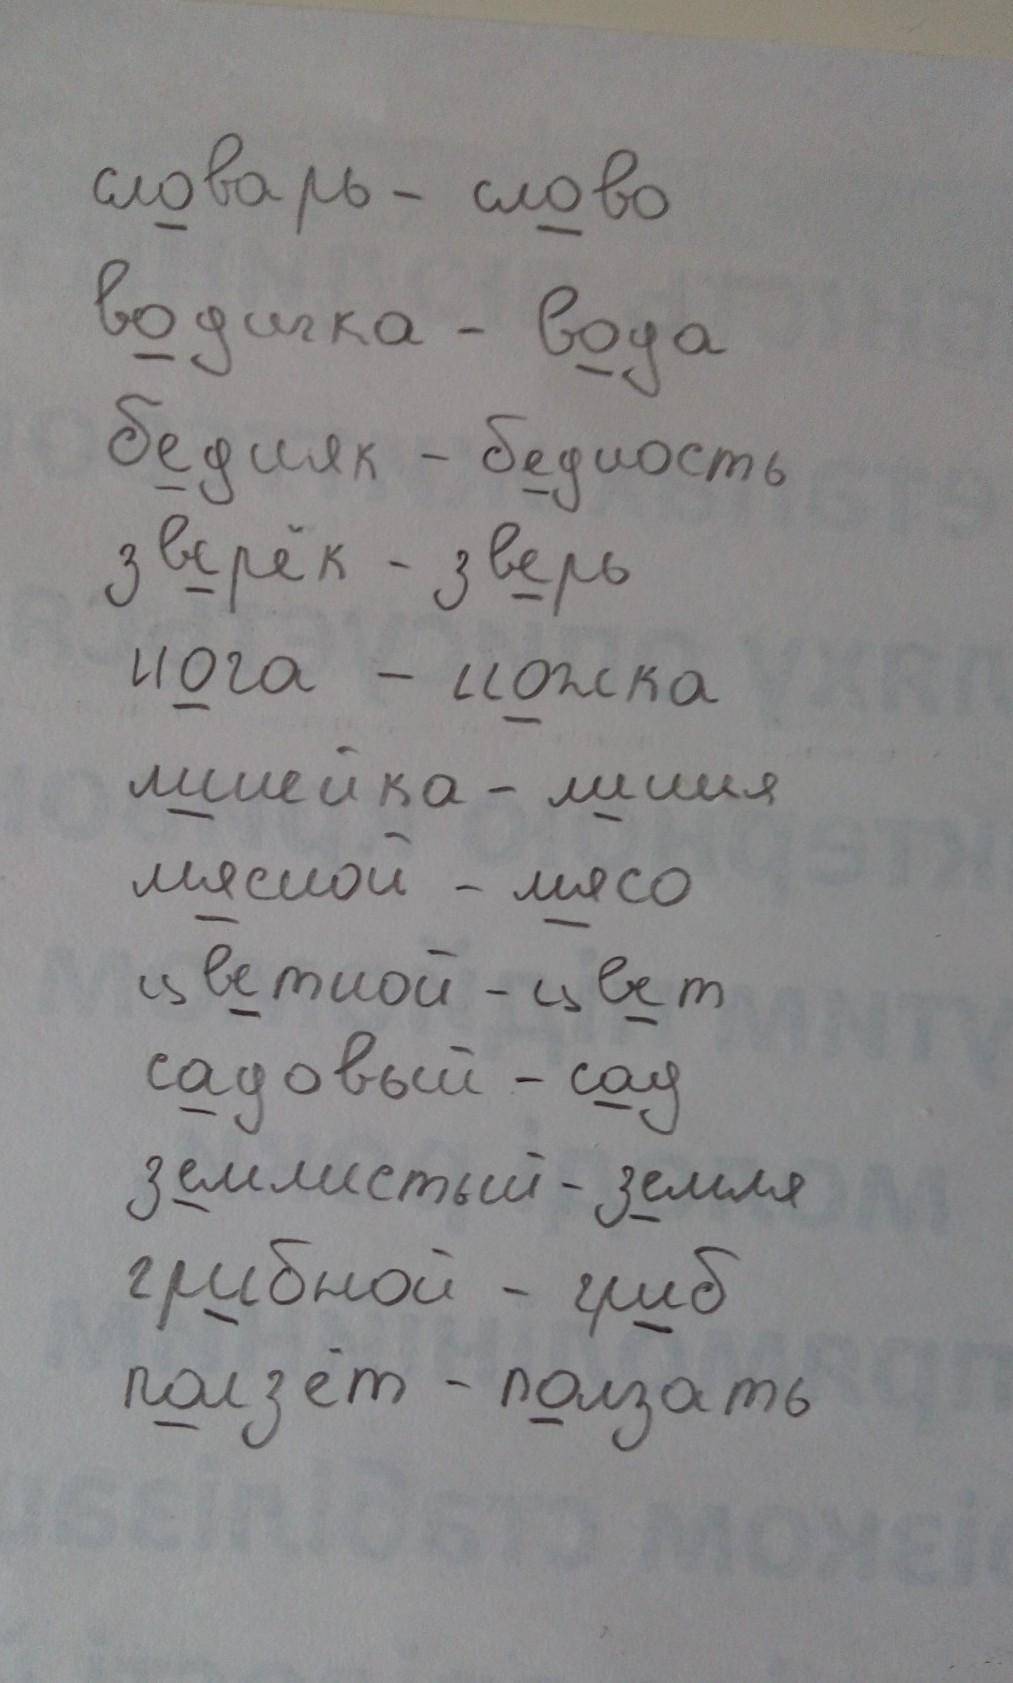 словарь - слово
водичка - вода
бедняк - бедность
зверёк - зверь
нога - ножка
линейка - линия
мясной - мясо
цветной - цвет
садовый - сад
землистый - земля
грибной - гриб
ползёт - ползать